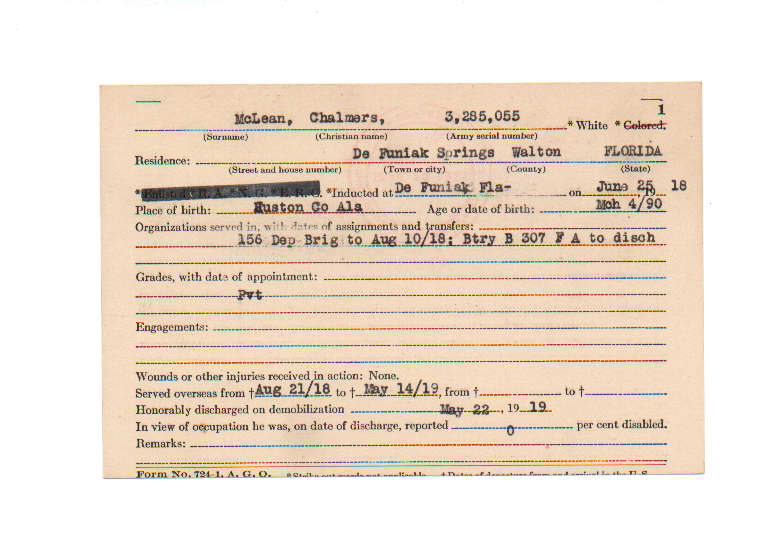 1
McLean, Chalmers, 3,285,055 * White * Colored.
(Surname) (Christian name) (Army serial number)
Residence: De Funiak Springs Walton FLORIDA
(Street and house number) (Town or city) (County) (State)
*Enlisted * R. A. * N. G. * E. R. C. *Inducted at De Funiak Fla- on June 25, 19 18
Place of birth: Huston Co Ala Age or date of birth: Mch 4/90
Organizations served in, with dates of assignments and transfers:
156 Dep Brig to Aug 10/18; Btry B 307 F A to disch
Grades, with date of appointment:
Pvt
Engagements:
Wounds or other injuries received in action: None.
Served overseas from † Aug 21/18 to † May 14/19, from † to †
Honorably discharged on demobilization May 22, 19 19
In view of occupation he was, on date of discharge, reported 0 per cent disabled.
Remarks:
Form No. 724-1, A. G. O. *Strike out words not applicable. †Dates of departure from and arrival in the U. S.